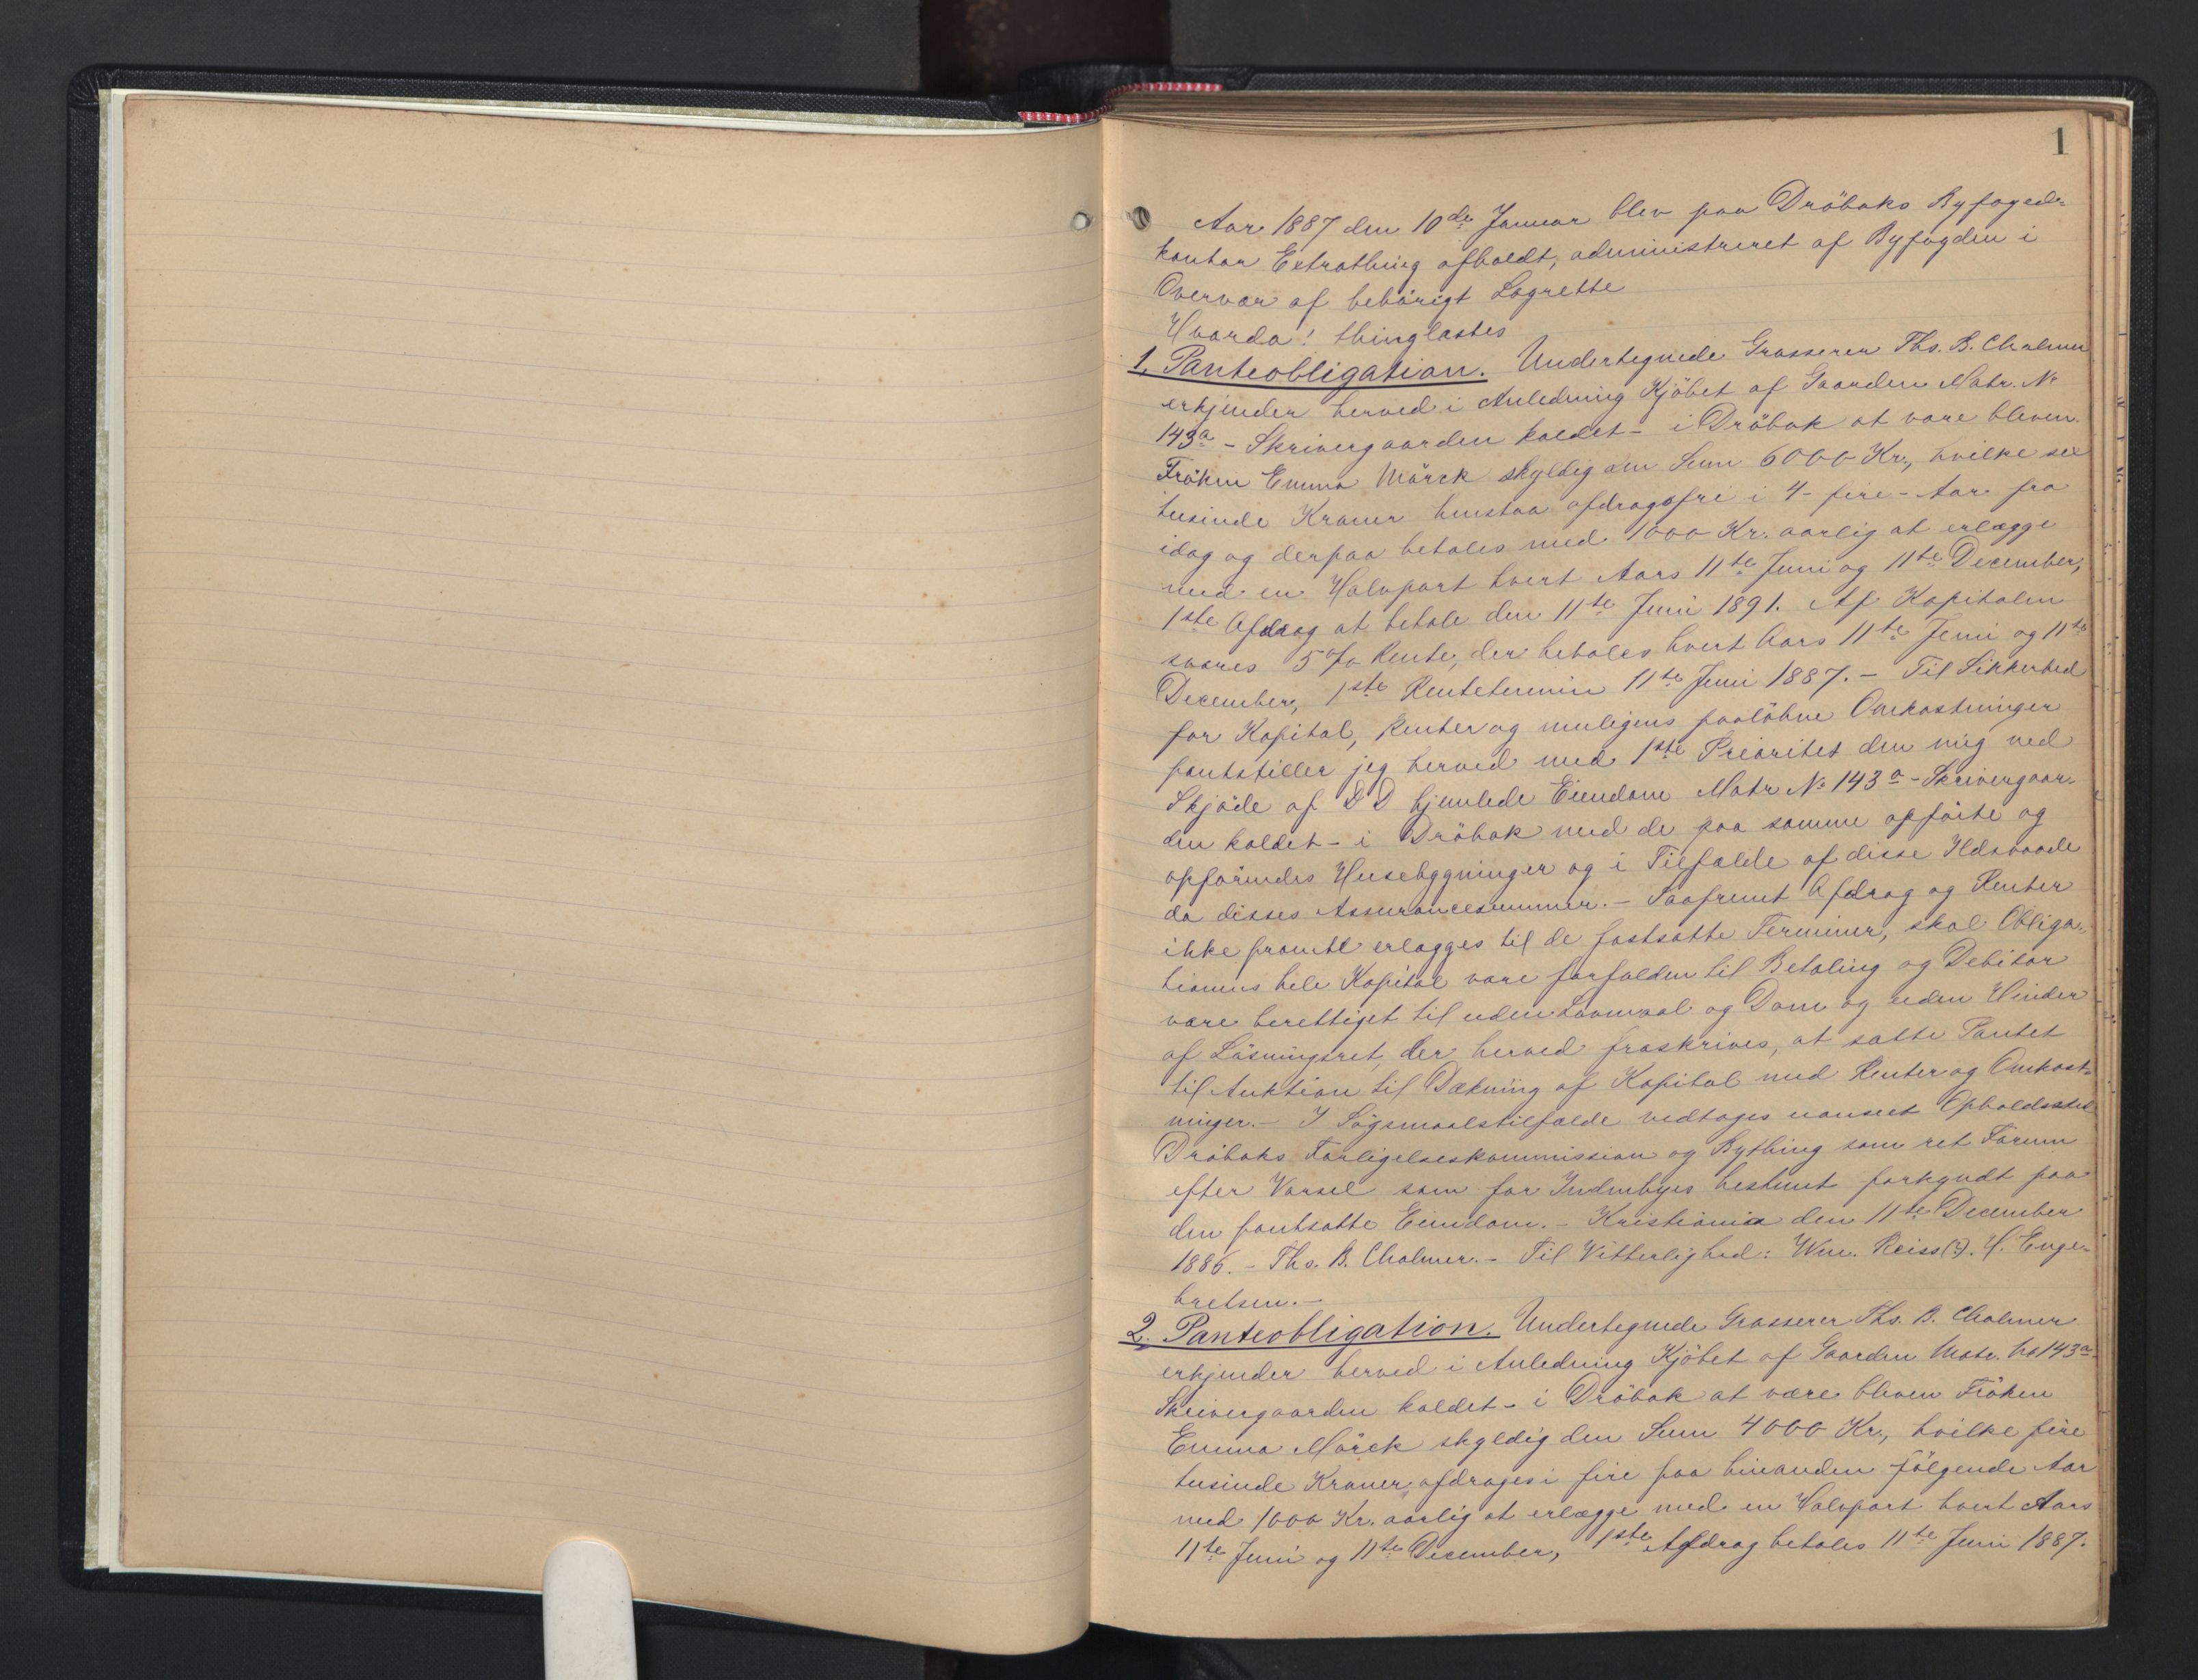 1
Aar 1887 den 10de Januar blev paa Dröbaks Byfoged-
kontor Extrathing afholdt, administreret af Byfogden i
Overvær af behörigt Lagrette
Hvorda! thinglæstes
1. Panteobligation. Undertegnede Grosserer Ths. B. Chalmer
erkjender herved i Anledning Kjöbet af Gaarden Matr. No
143a - Skrivergaarden kaldet - i Dröbak at være bleven
Fröken Emma Mörck skyldig den Sum 6000 Kr., hvilke sex
tusinde Kroner henstaa afdragsfri i 4 - fire - Aar fra
idag og derpaa betales med 1000 Kr. aarlig at erlægge
med en Halvpart hvert Aars 11te Juni og 11te December,
1ste Afdrag at betale den 11te Juni 1891. Af Kapitalen
svares 5 % Rente, der betales hvert Aars 11te Juni og 11te
December, 1ste Rentetermin 11te Juni 1887. - Til Sikkerhed
for Kapital, Renter og muligens paalöbne Omkostninger
pantstiller jeg herved med 1ste Prioritet den mig ved
Skjöde af D D hjemlede Eiendom Matr No 143a - Skrivergaar-
den kaldet - i Dröbak med de paa samme opförte og
opförendes Husebygninger og i Tilfælde af disse Ildsvaade
da disses Assurancesummer. - Saafremt Afdrag og Renter
ikke promte erlægges til de fastsatte Terminer, skal Obliga-
tionens hele Kapital være forfalden til Betaling og Debitor
være berettiget til uden Lovmaal og Dom og uden Hinder
af Lösningsret, der herved fraskrives, at sætte Pantet
til Auktion til Dækning af Kapital med Renter og Omkost-
ninger. - I Sögsmaalstilfælde vedtages uanseet Opholdssted
Dröbaks Forligelseskommission og Bything som ret Forum
efter Varsel som for Indenbyes bestemt forkyndt paa
den pantsatte Eiendom. - Kristiania den 11te December
1886. - Ths. B. Chalmer. - Til Vitterlighed: Wm. Reiss (?). H. Enge-
bretsen. -
2. Panteobligation. Undertegnede Grosserer Ths. B. Chalmer
erkjender herved i Anledning Kjöbet af Gaarden Matr. No 143a -
Skrivergaarden kaldet - i Dröbak at være bleven Fröken
Emma Mörck skyldig den Sum 4000 Kr., hvilke fire
tusinde Kroner afdrages i fire paa hinanden fölgende Aar
med 1000 Kr. aarlig at erlægge med en Halvpart hvert Aars
11te Juni og 11te December, 1ste Afdrag betales 11te Juni 1887.